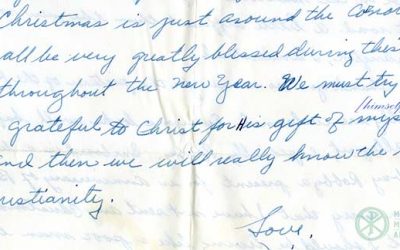 Christmas is just around the corner
all be very greatly blessed during this
throughout the New Year. We must try
himself
grateful to Christ for His gift of
and then we will really know the
ristianity.
Love,
M
M
A